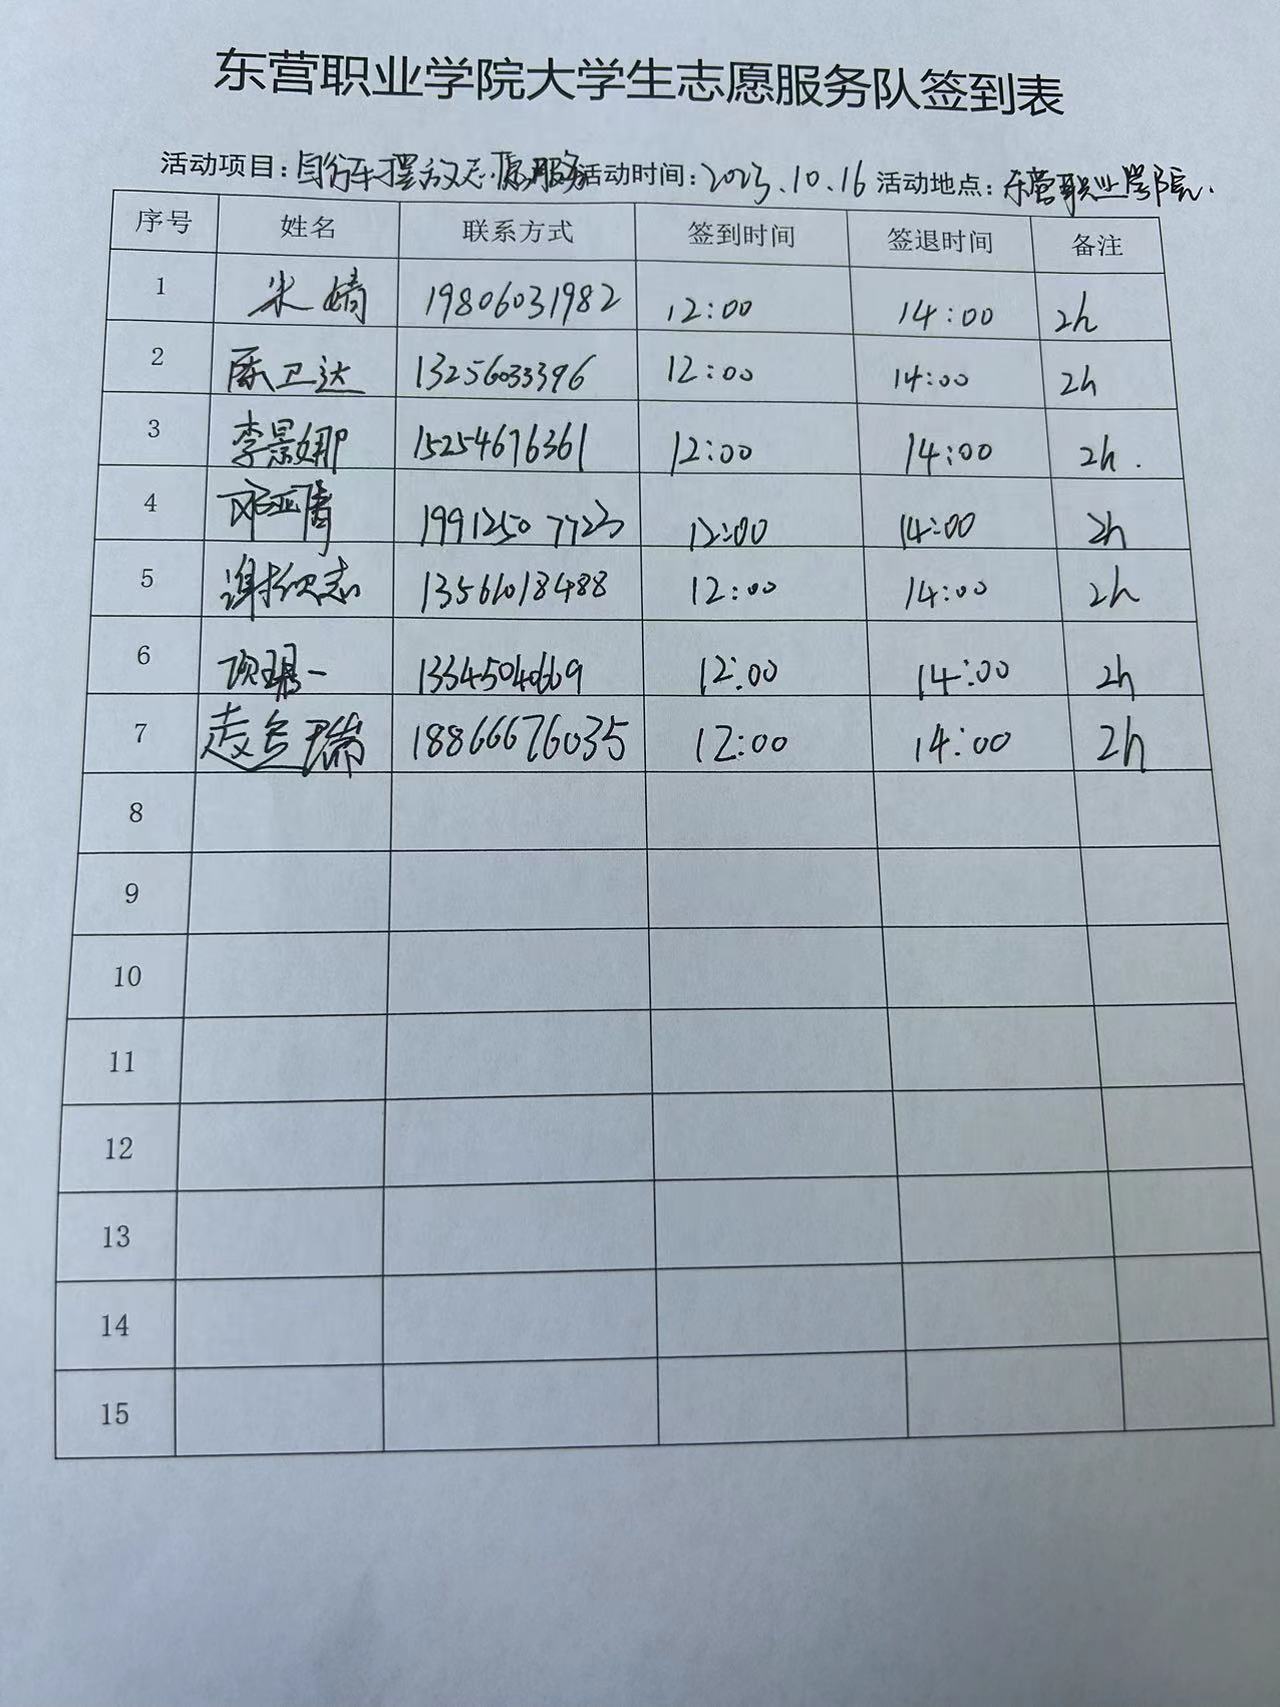 东营职业学院大学生志愿服务队签到表
活动项目:自行车摆放志愿服务 活动时间:2023.10.16 活动地点:东营职业学院.
序号 姓名 联系方式 签到时间 签退时间 备注
1 朱婧 19806031982 12:00 14:00 2h
2 陈卫达 13256033396 12:00 14:00 2h
3 李景娜 15254676361 12:00 14:00 2h.
4 邓亚倩 19912507723 12:00 14:00 2h
5 谢 志 13561018488 12:00 14:00 2h
6 一 13345040669 12:00 14:00 2h
7 瑞 18866676035 12:00 14:00 2h
8
9
10
11
12
13
14
15